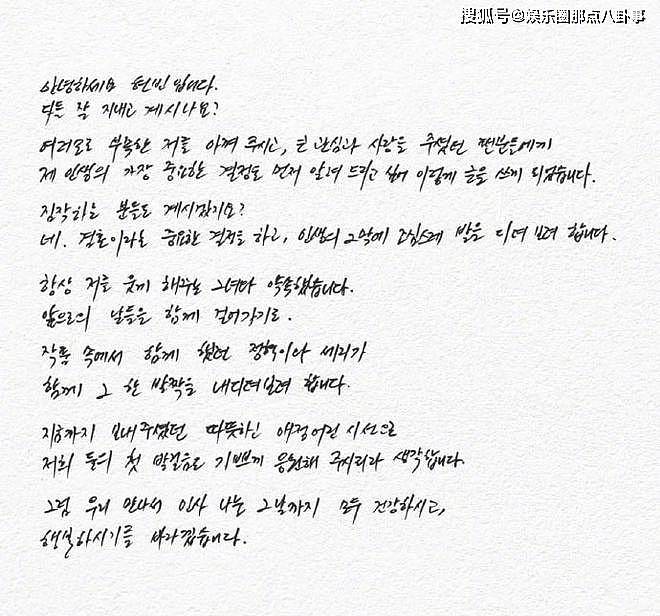 搜狐号@娱乐圈那点八卦事
안녕하세요 현빈입니다.
다들 잘 지내고 계시나요?
여러모로 부족한 저를 아껴 주시고, 큰 관심과 사랑을 주셨던 팬분들에게
제 인생의 가장 중요한 결정을 먼저 알려 드리고 싶어 이렇게 글을 쓰게 되었습니다.
짐작하는 분들도 계시겠지요?
네. 결혼이라는 중요한 결정을 하고, 인생의 2막에 조심스레 발을 디뎌 보려 합니다.
항상 저를 웃게 해주는 그녀와 약속했습니다.
앞으로의 날들을 함께 걸어가기로.
작품 속에서 함께 했던 정혁이와 세리가
함께 그 한 발짝을 내디뎌보려 합니다.
지금까지 보내주셨던 따뜻하신 애정어린 시선으로
저희 둘의 첫 발걸음도 기쁘게 응원해 주시리라 생각합니다.
그럼 우리 만나서 인사 나눌 그날까지 모두 건강하시고,
행복하시기를 바라겠습니다.